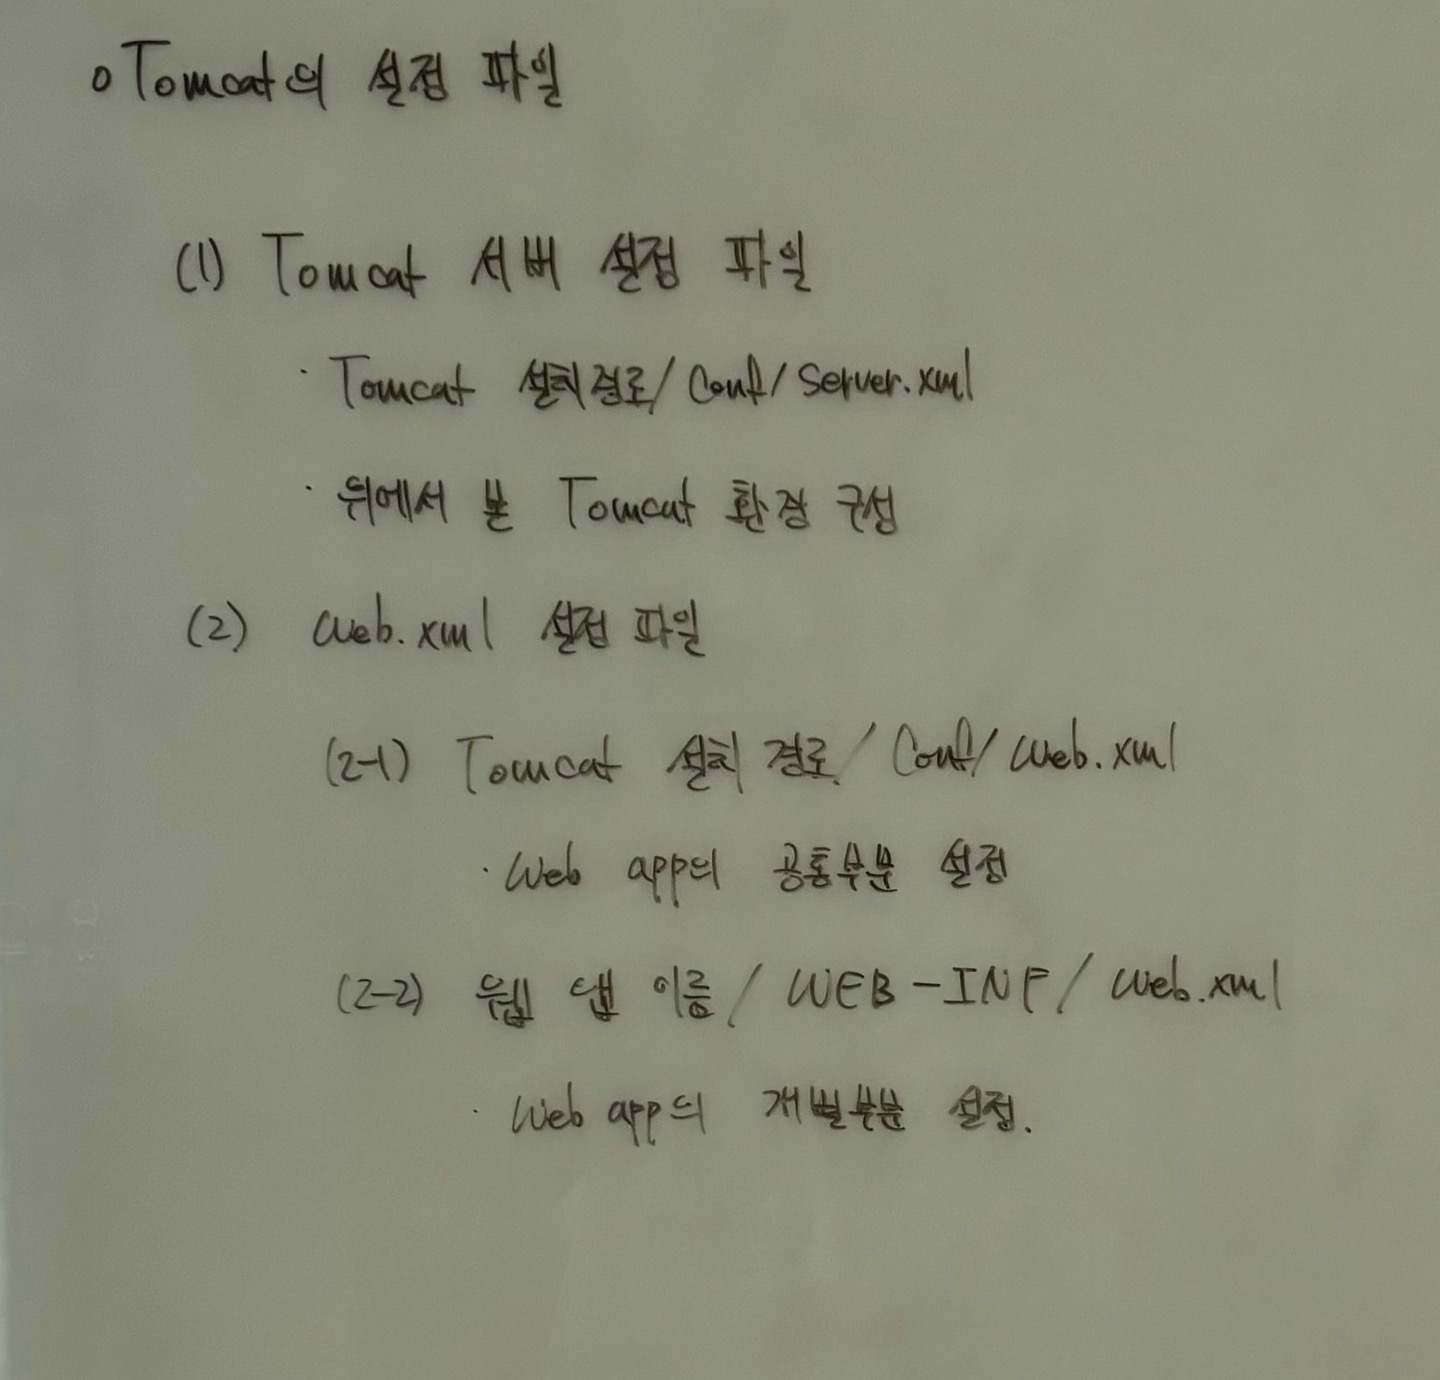 o Tomcat의 설정 파일
(1) Tomcat 서버 설정 파일
· Tomcat 설치경로/Conf/Server.xml
· 위에서 본 Tomcat 환경 구성
(2) Web.xml 설정 파일
(2-1) Tomcat 설치 경로/Conf/Web.xml
· Web app의 공통부분 설정
(2-2) 웹 앱 이름/WEB-INF/Web.xml
· Web app의 개별부분 설정.